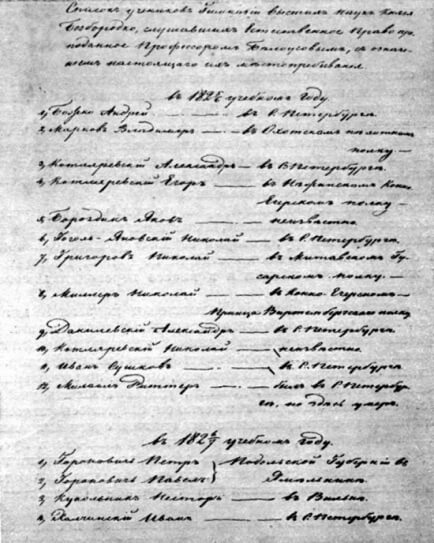 Список учеников Гимназии высших наук Князя
Безбородко, слушавших Естественное Право пре-
поданное Профессором Белоусовым, с означе-
нием настоящего их местопребывания
в 182⅚ учебном году.
1, Божко Андрей — в С. Петербурге.
2, Марков Владимир — в Охотском пехотном
полку —
3, Котляревский Александр — в С. Петербурге.
4, Котляревский Егор — в Нежинском Конно
Егерском полку —
5, Бороздин Яков — неизвестно
6, Гоголь-Яновский Николай — в С. Петербурге.
7, Григоров Николай — в Митавском Гу-
сарском полку. —
8, Миллер Николай — в Конно-Егерском —
Принца Виртембергского полку
9, Данилевский Александр — в С. Петербурге
10, Котляревский Николай — неизвестно
11, Иван Сушков — в С. Петербурге
12, Риттер — был в С. Петербур-
ге, но здесь умер.
в 182 6/7 учебном году.
1, Горонович Петр Подольской Губернии в
2, Горонович Павел Ямполе
3, Кукольник Нестор — в Вильне.
4, Халчинский Иван — в С. Петербурге.